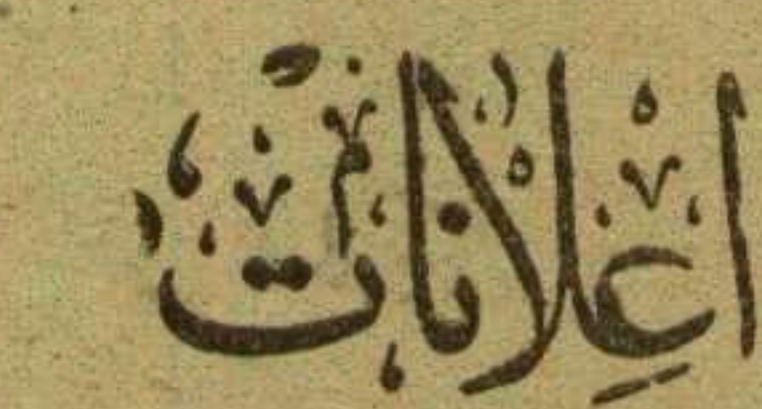 اعلانات